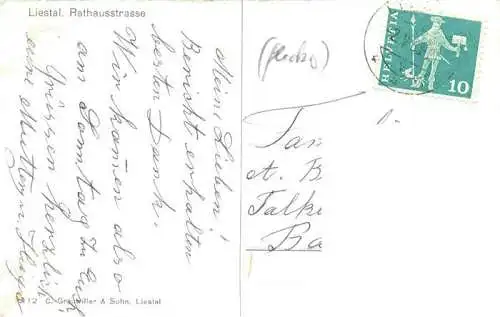 Liestal. Rathausstrasse
Meine Lieben!
Bericht erhalten
besten Dank.
Wir kom̄en also
am Samstag zu Euch
Grüssen herzlich
eure Mutter u.
HELVETIA
10
Fam
A. B
Talke
Ba
12 C. Grauwiller & Sohn, Liestal